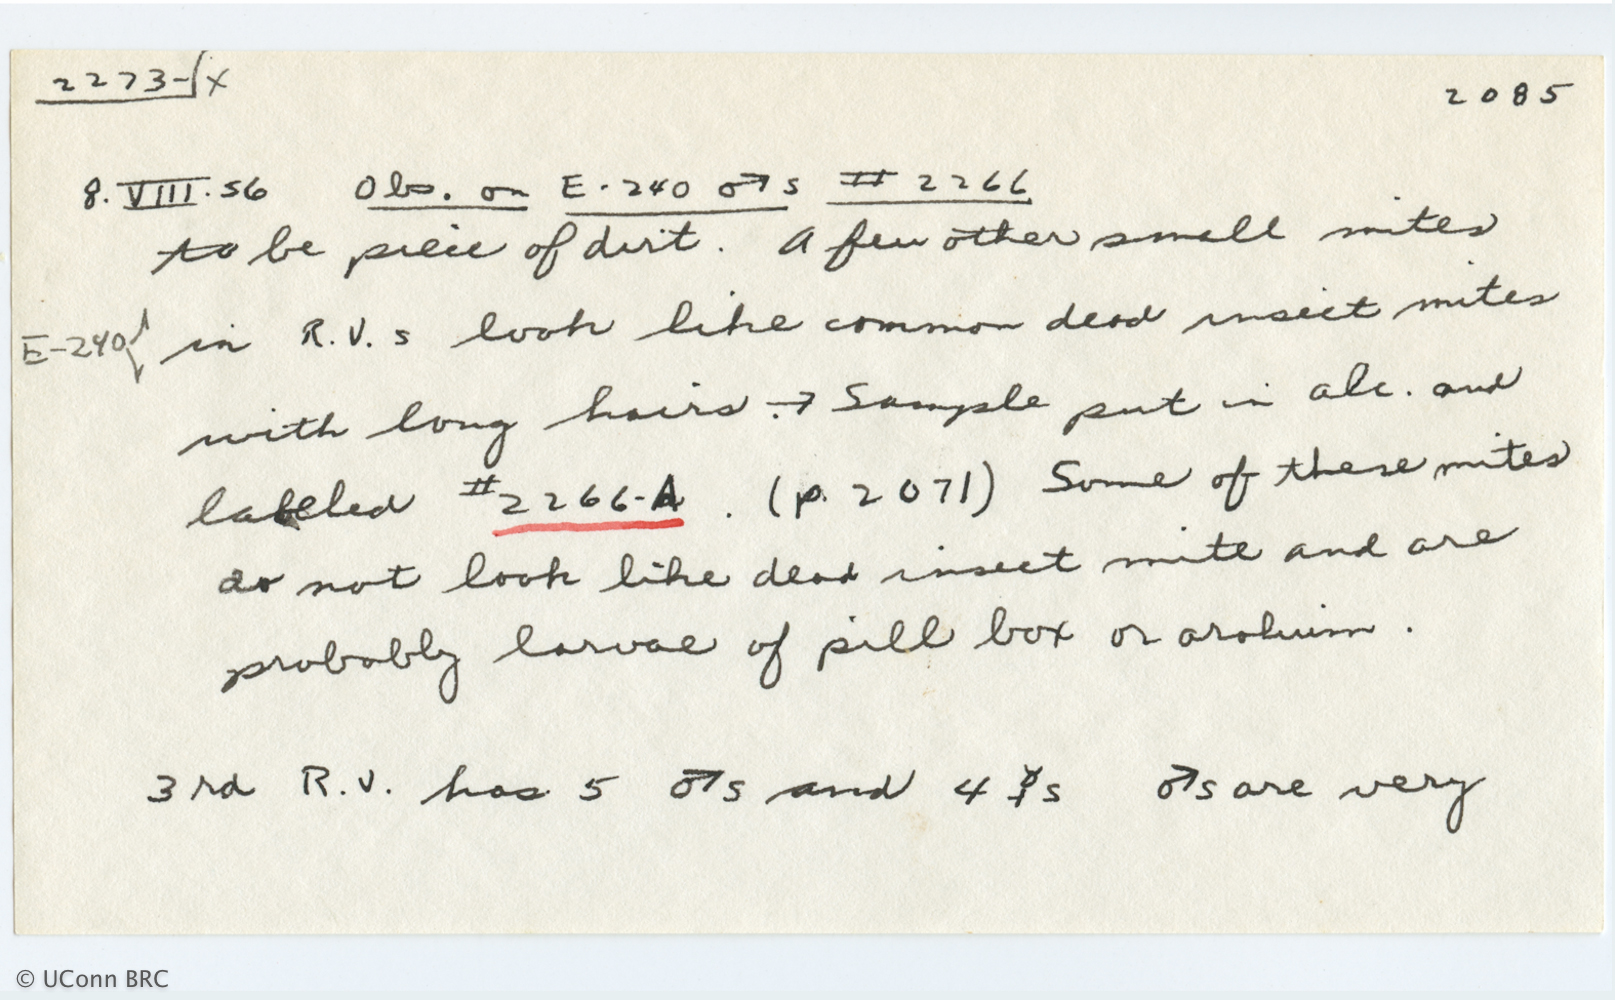 2273-x
2085
8.VIII.56 Obs. on E-240 ♂s # 2266
to be piece of dirt. A few other small mites
E-240 in R.V.s look like common dead insect mites
with long hairs. → Sample put in alc. and
labeled #2266-A. (p. 2071) Some of these mites
do not look like dead insect mite and are
probably larvae of pill box or
3rd R.V. has 5 ♂s and 4 ☿s ♂s are very
© UConn BRC